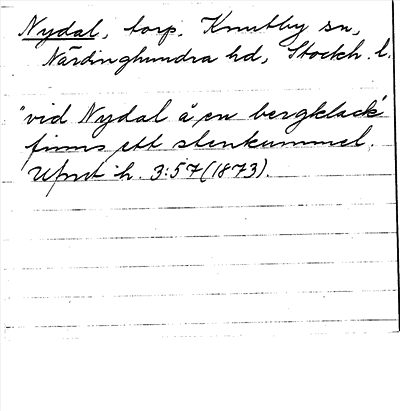 Nydal, torp. Knutby sn,
Närdinghundra hd, Stockh. l.
"vid Nydal å en bergklack
finns ett stenkummel.
Upmt h. 3:57 (1873).